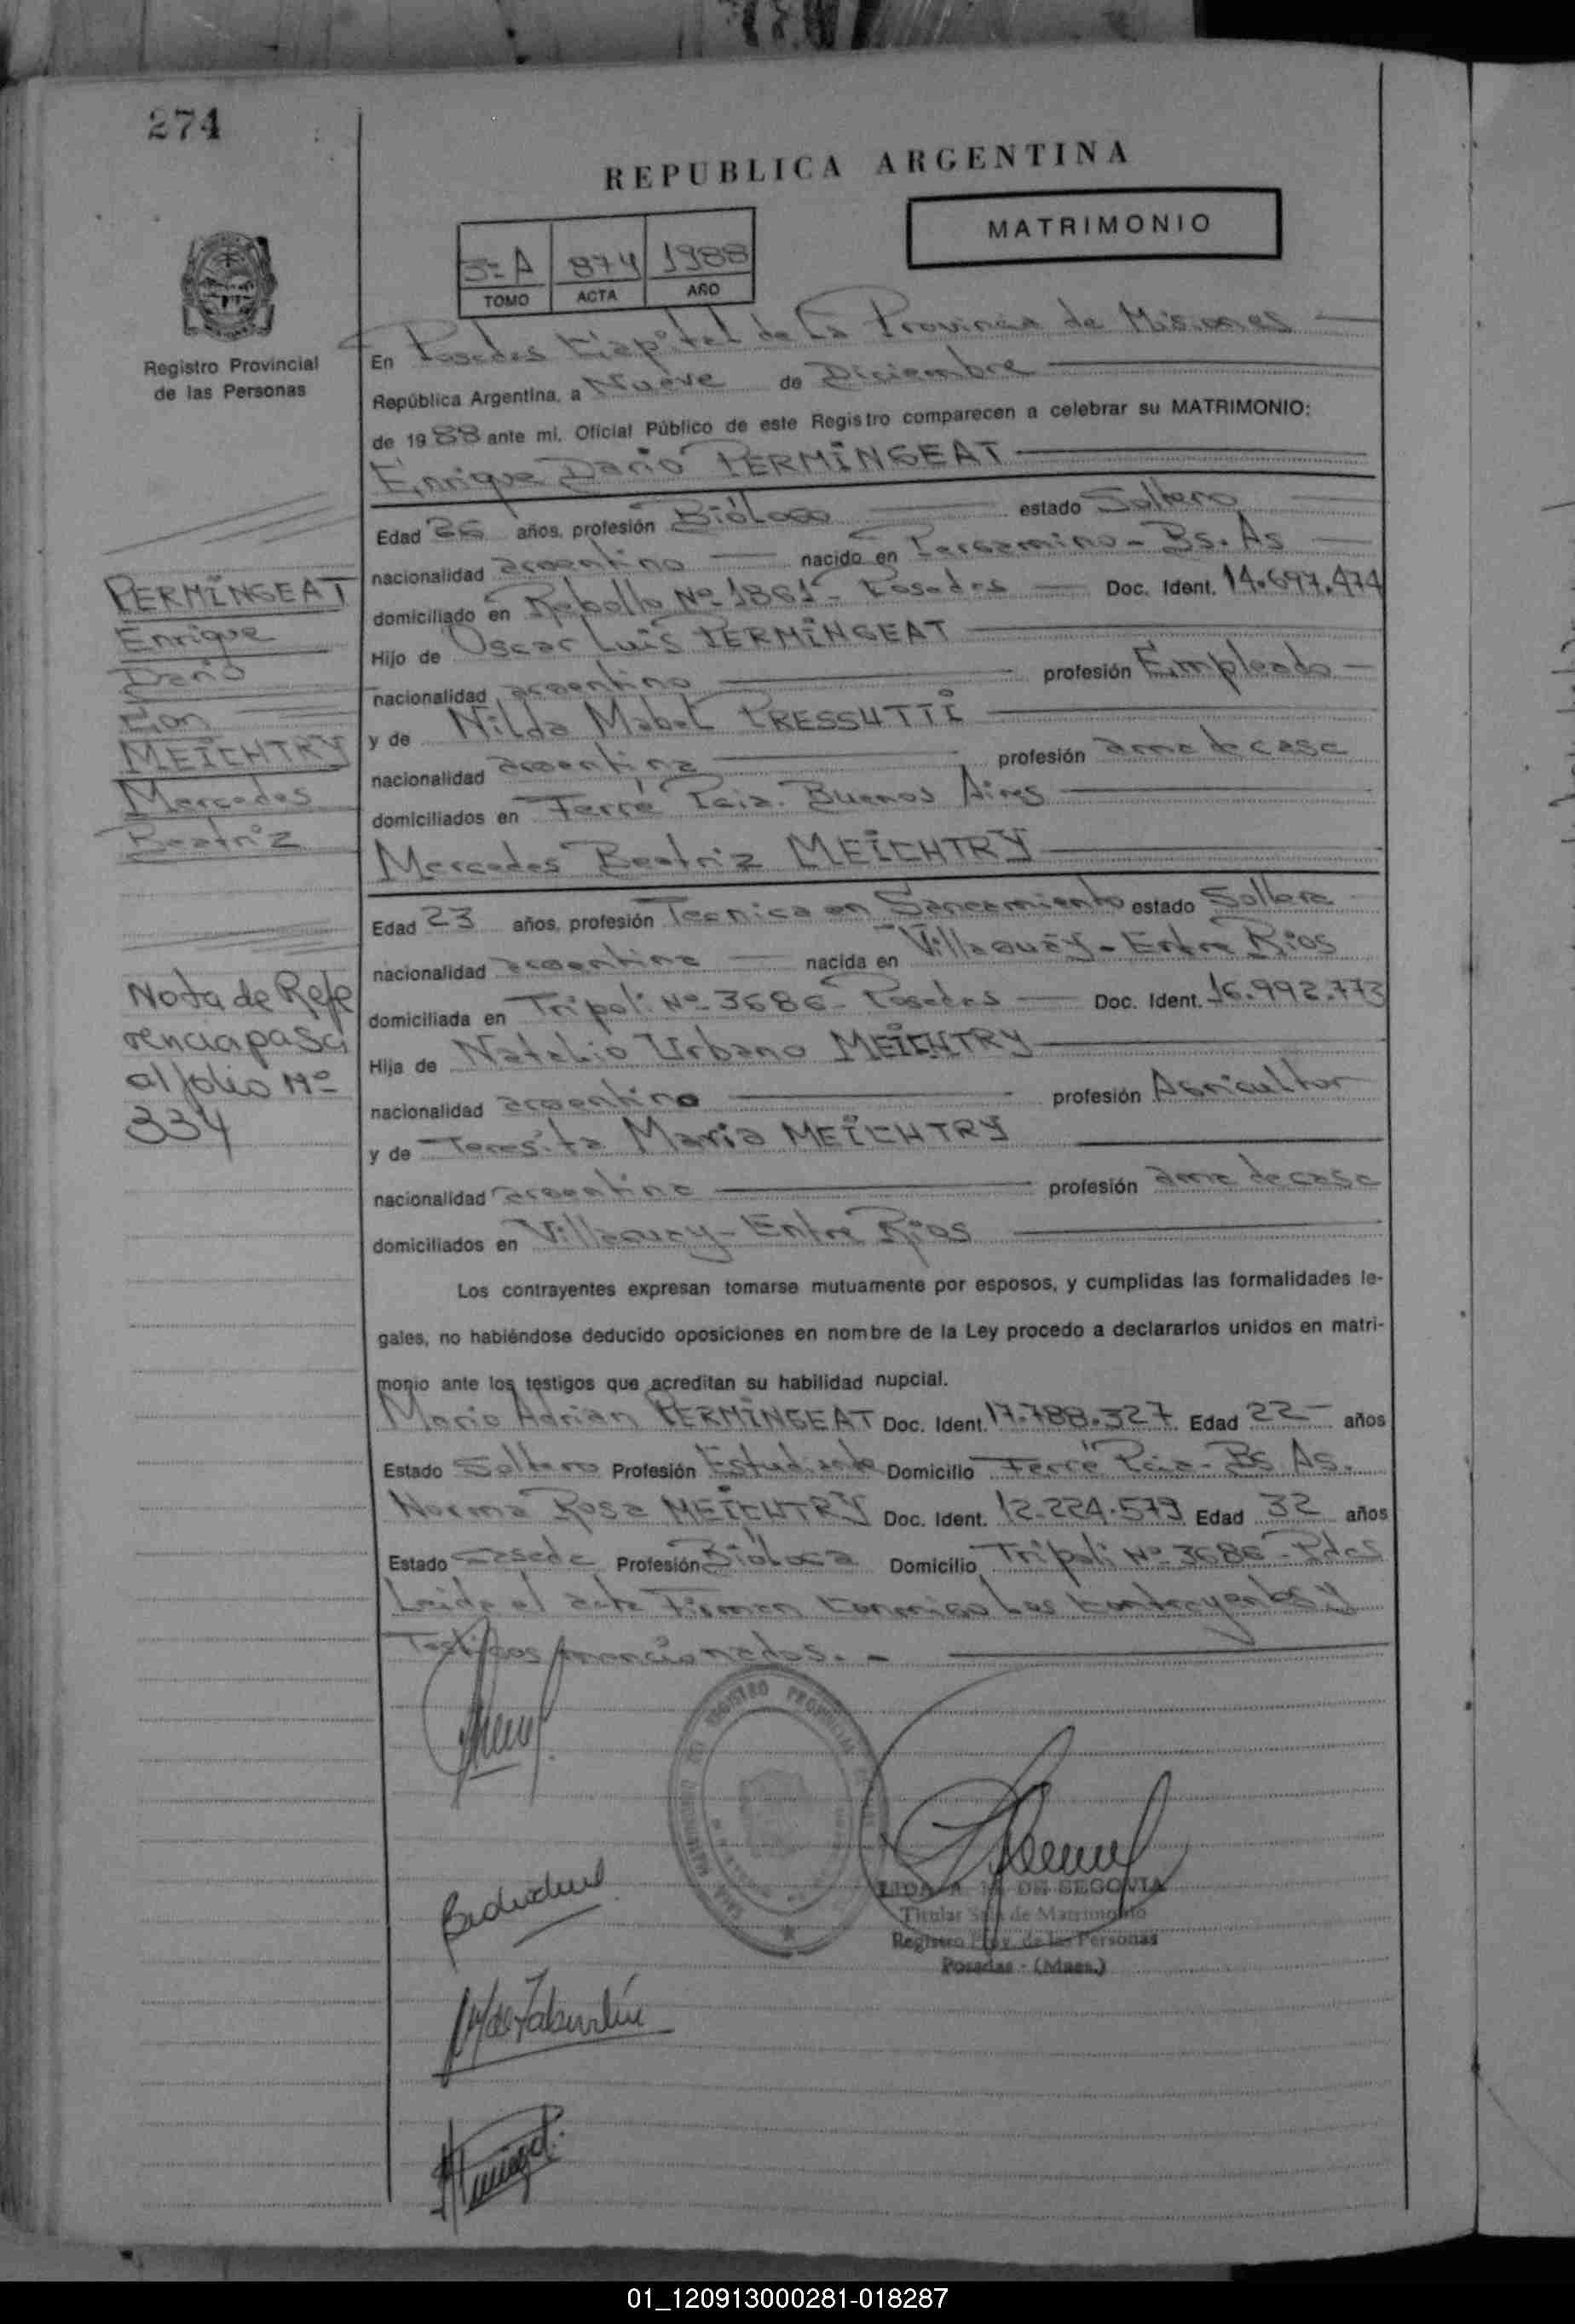 274
REPUBLICA ARGENTINA
MATRIMONIO
5º A 874 1988
TOMO ACTA AÑO
Registro Provincial
de las Personas
En Posadas Capital de La Provincia de Misiones
República Argentina, a Nueve de Diciembre
de 1988 ante mi, Oficial Público de este Registro comparecen a celebrar su MATRIMONIO:
Enrique Darío PERMINGEAT
Edad 26 años, profesión Biólogo estado Soltero
nacionalidad argentino nacido en Pergamino - Bs. As
domiciliado en Rebollo Nº 1861 - Posadas Doc. Ident. 14.697.474
Hijo de Oscar Luis PERMINGEAT
nacionalidad argentino profesión Empleado
y de Nilda Mabel PRESSUTTI
nacionalidad argentina profesión ama de casa
domiciliados en Ferré Pcia. Buenos Aires
Mercedes Beatriz MEICHTRY
Edad 23 años, profesión Tecnica en Saneamiento estado Soltera
nacionalidad argentina nacida en Villaguay - Entre Rios
domiciliada en Tripoli Nº 3686 - Posadas Doc. Ident. 16.992.773
Hija de Natalio Urbano MEICHTRY
nacionalidad argentino profesión Agricultor
y de Teresita Maria MEICHTRY
nacionalidad argentina profesión ama de casa
domiciliados en Villaguay - Entre Rios
Los contrayentes expresan tomarse mutuamente por esposos, y cumplidas las formalidades le-
gales, no habiéndose deducido oposiciones en nombre de la Ley procedo a declararlos unidos en matri-
monio ante los testigos que acreditan su habilidad nupcial.
Mario Adrián PERMINGEAT Doc. Ident. 17.788.327 Edad 22 años
Estado Soltero Profesión Estudiante Domicilio Ferré Pcia - Bs As.
Norma Rosa MEICHTRY Doc. Ident. 12.224.579 Edad 32 años
Estado Casada Profesión Bióloga Domicilio Tripoli Nº 3686 - Pdas
Leida el acta Firman Conmigo Los Contrayentes y
Testigos mencionados. -
PERMINGEAT
Enrique
Darío
Con
MEICHTRY
Mercedes
Beatriz
Nota de Refe
rencia pasa
al folio Nº
334
REGISTRO PROVINCIAL
DE SEGOVIA
Titular Sala de Matrimonio
Registro Prov. de las Personas
Posadas - (Mnes.)
01_120913000281-018287